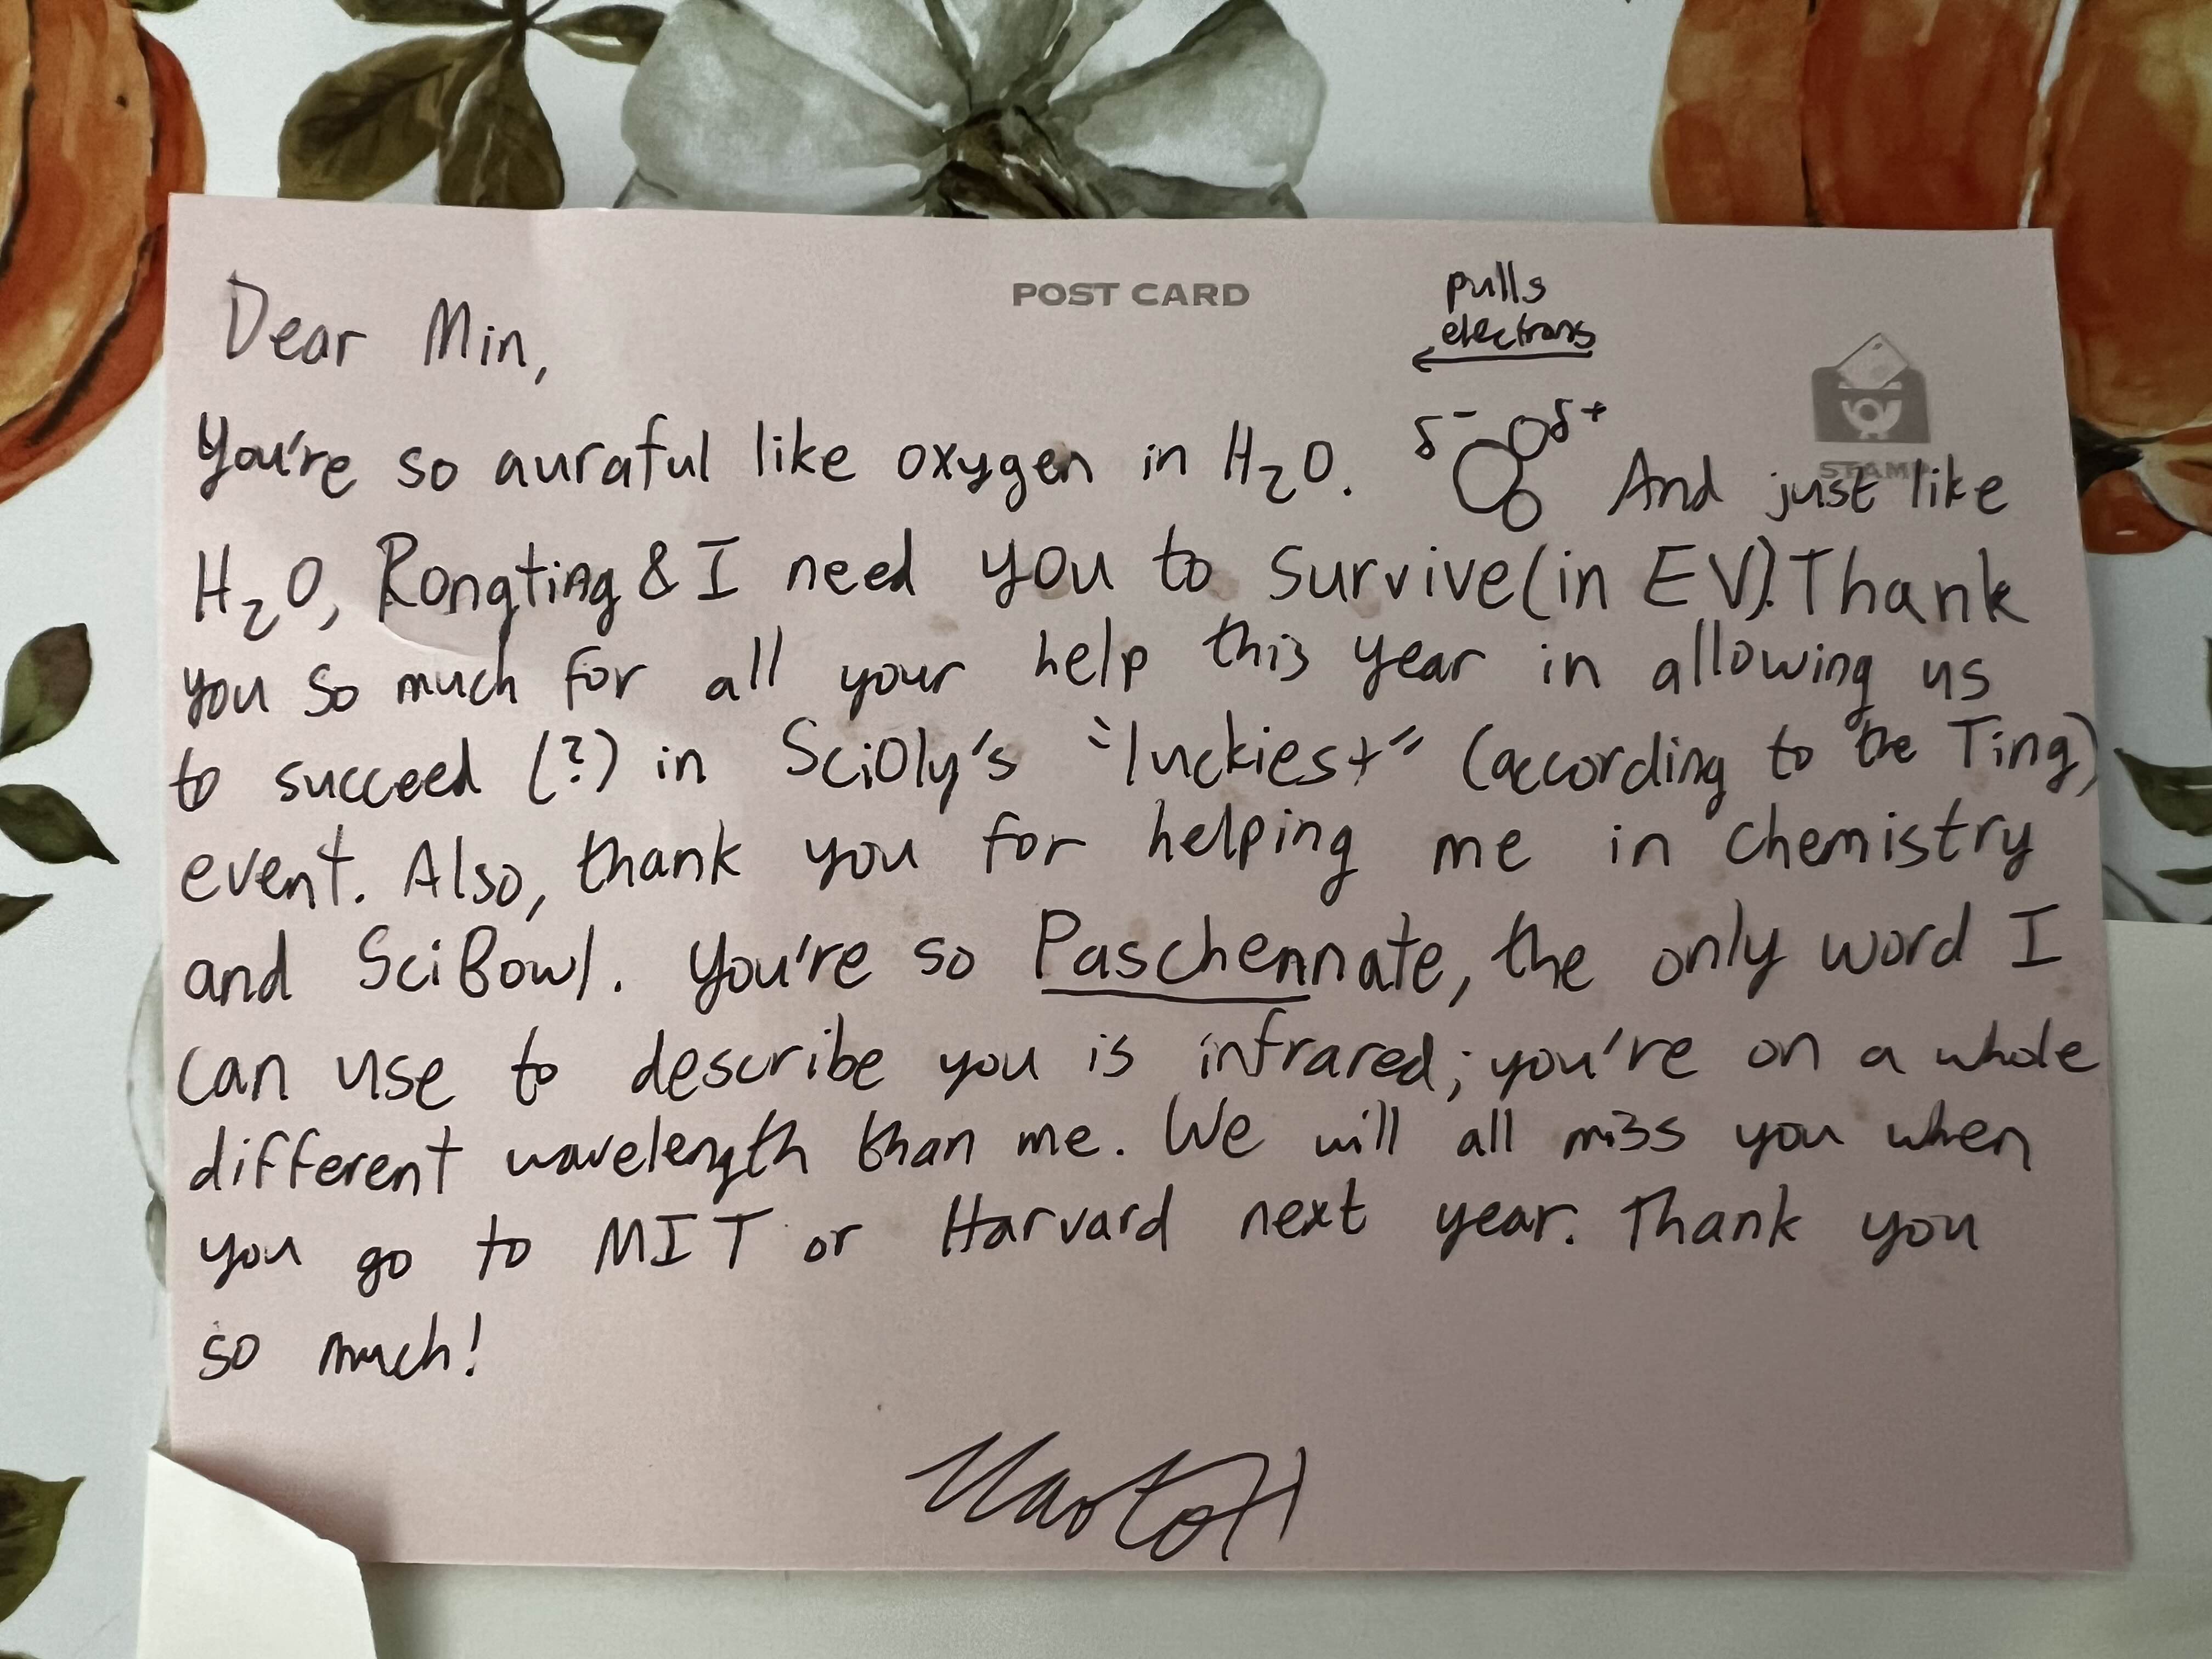 POST CARD
pulls
electrons
Dear Min,
δ⁻ δ⁺
You're so auraful like oxygen in H₂O. And just like
STAMP
H₂O, Rongting & I need you to survive (in EV). Thank
you so much for all your help this year in allowing us
to succeed (?) in SciOly's "luckiest" (according to the Ting)
event. Also, thank you for helping me in chemistry
and SciBowl. You're so Paschennate, the only word I
can use to describe you is infrared; you're on a whole
different wavelength than me. We will all miss you when
you go to MIT or Harvard next year. Thank you
so much!